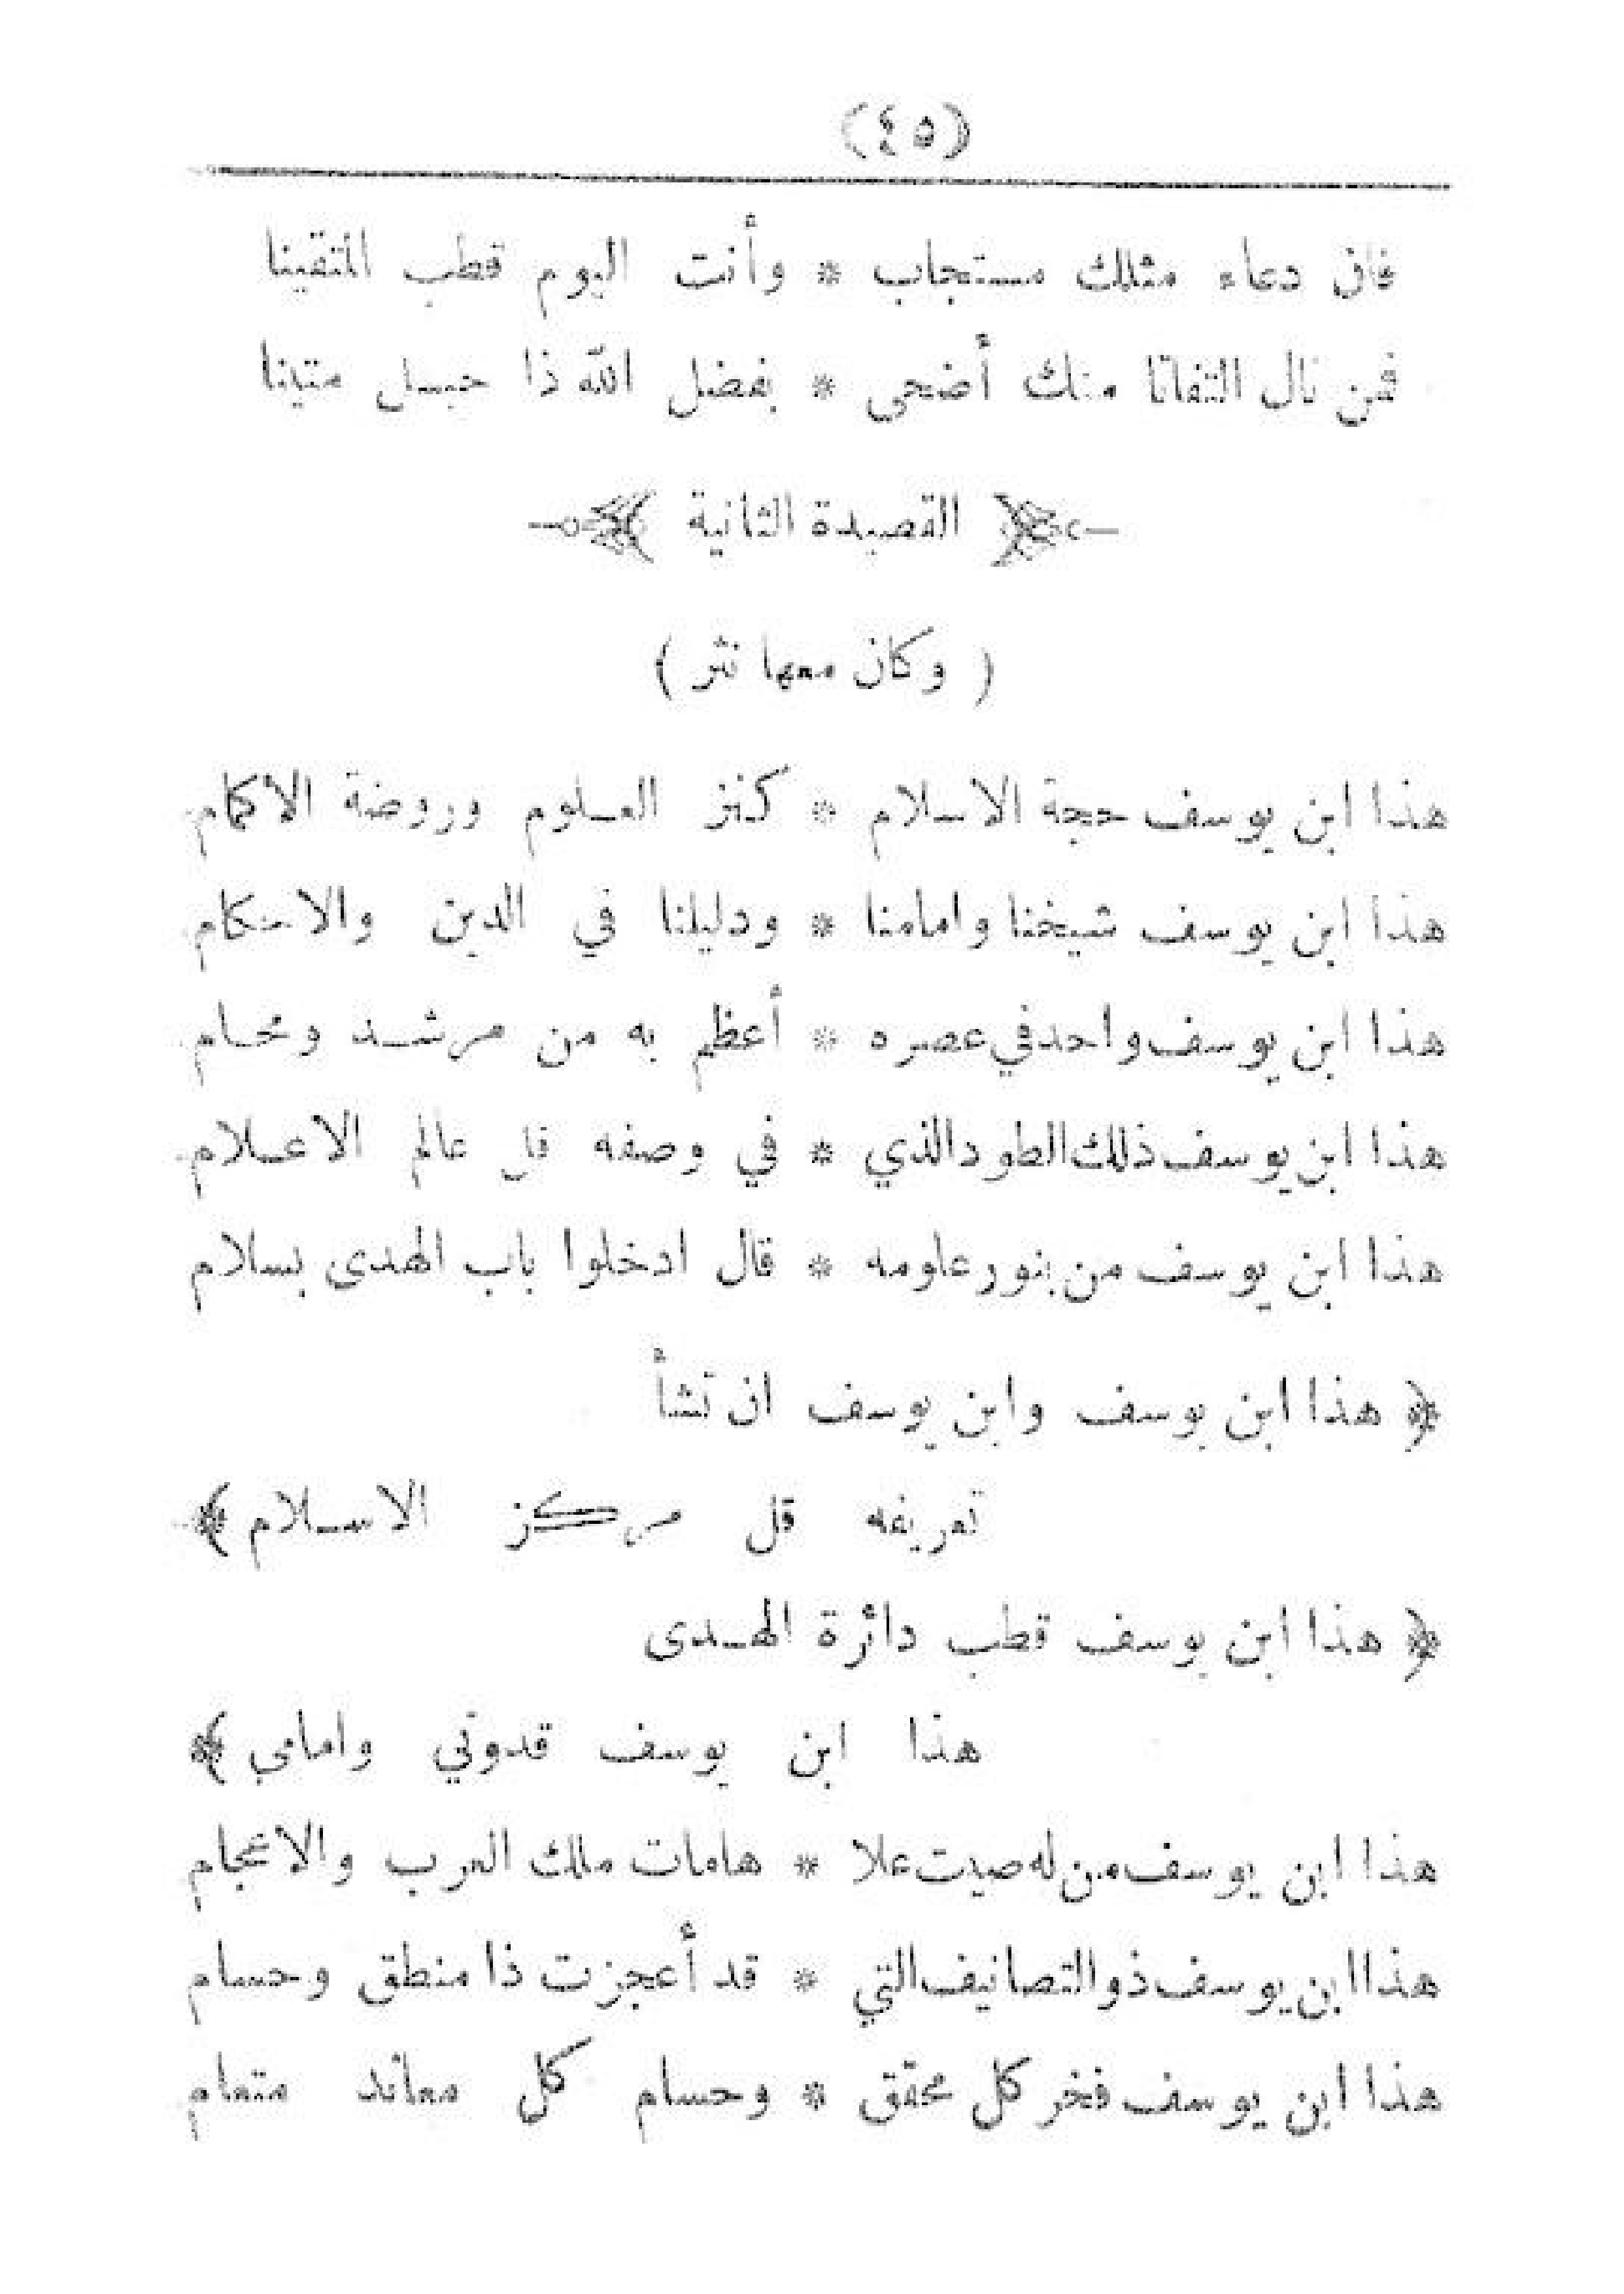 (٤٥)
فان دعاء مثلك مستجاب * وأنت اليوم قطب المتقينا
فمن نال التفاتا منك أضحى * بفضل الله ذا حبل متينا
﴿ القصيدة الثانية ﴾
( وكان معها نثر )
هذا ابن يوسف حجة الاسلام * كنز العلوم وروضة الأكمام
هذا ابن يوسف شيخنا وامامنا * ودليلنا في الدين والاحكام
هذا ابن يوسف واحد في عصره * أعظم به من مرشد ومحام
هذا ابن يوسف ذلك الطود الذي * في وصفه قل عالم الاعلام
هذا ابن يوسف من بنور علومه * قال ادخلوا باب الهدى بسلام
﴿ هذا ابن يوسف وابن يوسف ان تشأ
تعريفه قل مركز الاسلام ﴾
﴿ هذا ابن يوسف قطب دائرة الهدى
هذا ابن يوسف قدوتي وامامي ﴾
هذا ابن يوسف من له صيت علا * هامات ملك العرب والاعجام
هذا ابن يوسف ذو التصانيف التي * قد أعجزت ذا منطق وحسام
هذا ابن يوسف فخر كل محقّق * وحسام كل معاند متعام